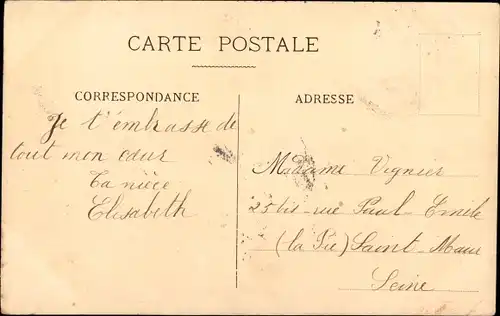 CARTE POSTALE
CORRESPONDANCE
ADRESSE
Je t'embrasse de
tout mon cœur
Ta nièce
Elisabeth
Madame Vignier
25 bis rue Paul-Emile
(la Pie) Saint-Maur
Seine